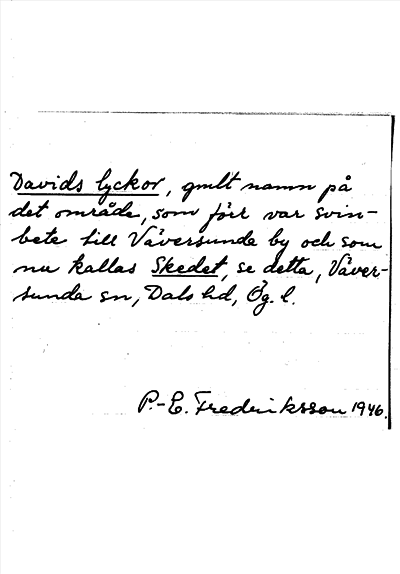 Davids lyckor, gmlt namn på
det område, som förr var svin-
bete till Väversunda by och som
nu kallas Skedet, se detta, Väver-
sunda sn, Dals hd, Ög. l.
P.-E. Fredriksson 1946.